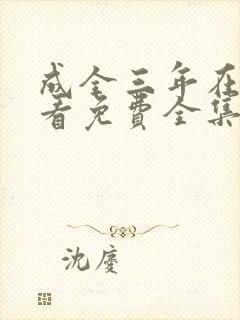 成全三年在
看免费全集
沈廈